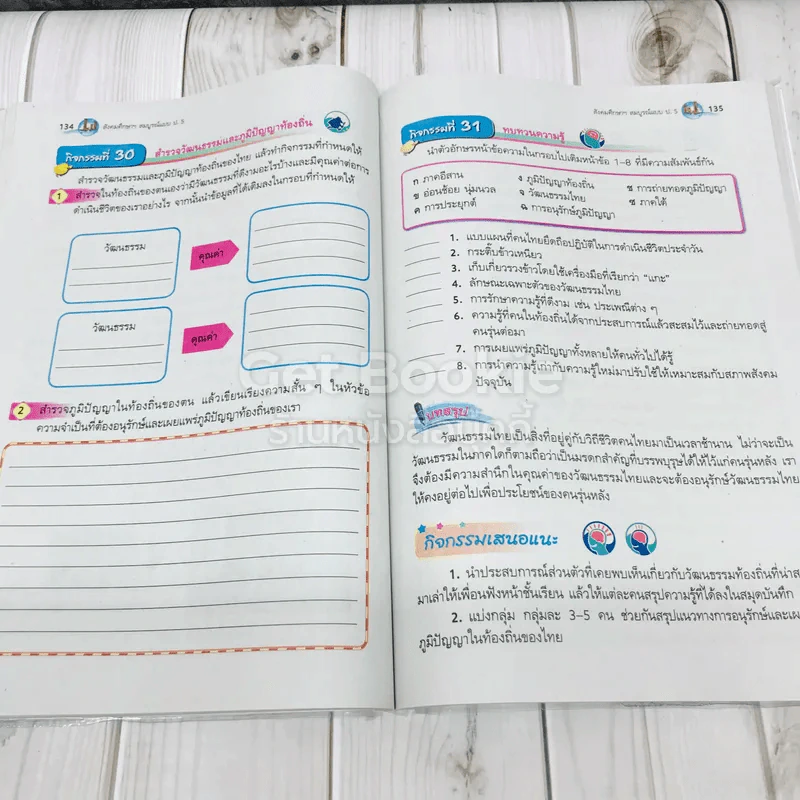 134
สังคมศึกษาฯ สมบูรณ์แบบ ป. 5
กิจกรรมที่ 30
สำรวจวัฒนธรรมและภูมิปัญญาท้องถิ่น
สำรวจวัฒนธรรมและภูมิปัญญาท้องถิ่นของไทย แล้วทำกิจกรรมที่กำหนดให้
1 สำรวจในท้องถิ่นของตนเองว่ามีวัฒนธรรมที่ดีงามอะไรบ้างและมีคุณค่าต่อการ
ดำเนินชีวิตของเราอย่างไร จากนั้นนำข้อมูลที่ได้เติมลงในกรอบที่กำหนดให้
วัฒนธรรม
คุณค่า
วัฒนธรรม
คุณค่า
2 สำรวจภูมิปัญญาในท้องถิ่นของตน แล้วเขียนเรียงความสั้น ๆ ในหัวข้อ
ความจำเป็นที่ต้องอนุรักษ์และเผยแพร่ภูมิปัญญาท้องถิ่นของเรา
สังคมศึกษาฯ สมบูรณ์แบบ ป. 5
135
กิจกรรมที่ 31
ทบทวนความรู้
นำตัวอักษรหน้าข้อความในกรอบไปเติมหน้าข้อ 1-8 ที่มีความสัมพันธ์กัน
ก ภาคอีสาน ง ภูมิปัญญาท้องถิ่น ช การถ่ายทอดภูมิปัญญา
ข อ่อนช้อย นุ่มนวล จ วัฒนธรรมไทย ซ ภาคใต้
ค การประยุกต์ ฉ การอนุรักษ์ภูมิปัญญา
1. แบบแผนที่คนไทยยึดถือปฏิบัติในการดำเนินชีวิตประจำวัน
2. กระติ๊บข้าวเหนียว
3. เก็บเกี่ยวรวงข้าวโดยใช้เครื่องมือที่เรียกว่า “แกะ”
4. ลักษณะเฉพาะตัวของวัฒนธรรมไทย
5. การรักษาความรู้ที่ดีงาม เช่น ประเพณีต่าง ๆ
6. ความรู้ที่คนในท้องถิ่นได้จากประสบการณ์แล้วสะสมไว้และถ่ายทอดสู่
คนรุ่นต่อมา
7. การเผยแพร่ภูมิปัญญาทั้งหลายให้คนทั่วไปได้รู้
8. การนำความรู้เก่ากับความรู้ใหม่มาปรับใช้ให้เหมาะสมกับสภาพสังคม
ปัจจุบัน
Get Bookie
ร้านหนังสือเก็ตบุ๊คกี้
บทสรุป
วัฒนธรรมไทยเป็นสิ่งที่อยู่คู่กับวิถีชีวิตคนไทยมาเป็นเวลาช้านาน ไม่ว่าจะเป็น
วัฒนธรรมในภาคใดก็ตามถือว่าเป็นมรดกสำคัญที่บรรพบุรุษได้ให้ไว้แก่คนรุ่นหลัง เรา
จึงต้องมีความสำนึกในคุณค่าของวัฒนธรรมไทยและจะต้องอนุรักษ์วัฒนธรรมไทย
ให้คงอยู่ต่อไปเพื่อประโยชน์ของคนรุ่นหลัง
กิจกรรมเสนอแนะ
1. นำประสบการณ์ส่วนตัวที่เคยพบเห็นเกี่ยวกับวัฒนธรรมท้องถิ่นที่น่าส
มาเล่าให้เพื่อนฟังหน้าชั้นเรียน แล้วให้แต่ละคนสรุปความรู้ที่ได้ลงในสมุดบันทึก
2. แบ่งกลุ่ม กลุ่มละ 3-5 คน ช่วยกันสรุปแนวทางการอนุรักษ์และเผย
ภูมิปัญญาในท้องถิ่นของไทย